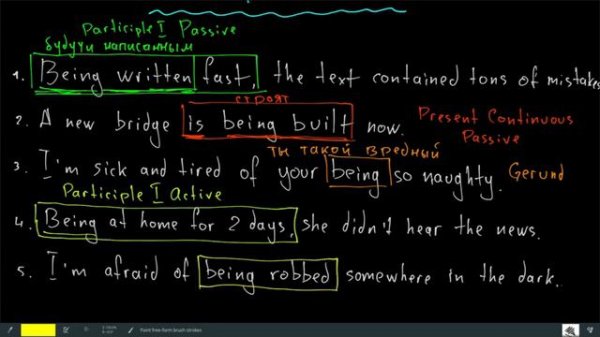 Participle I Passive
будучи написанным
1. Being written fast, the text contained tons of mistakes
строят
2. A new bridge is being built now. Present Continuous Passive
ты такой вредный
3. I'm sick and tired of your being so naughty. Gerund
Participle I Active
4. Being at home for 2 days, she didn't hear the news.
5. I'm afraid of being robbed somewhere in the dark.
Paint free-form brush strokes